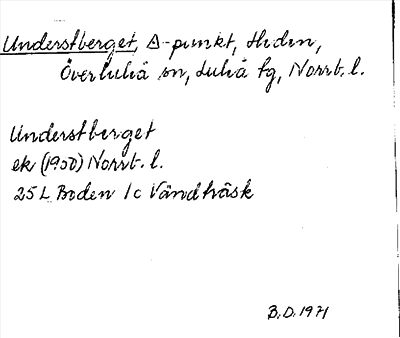 Understberget, △-punkt, Heden,
Överluleå sn, Luleå tg, Norrb. l.
Understberget
ek (1950) Norrb. l.
25 L Boden 1c Vändträsk
B.D. 1971